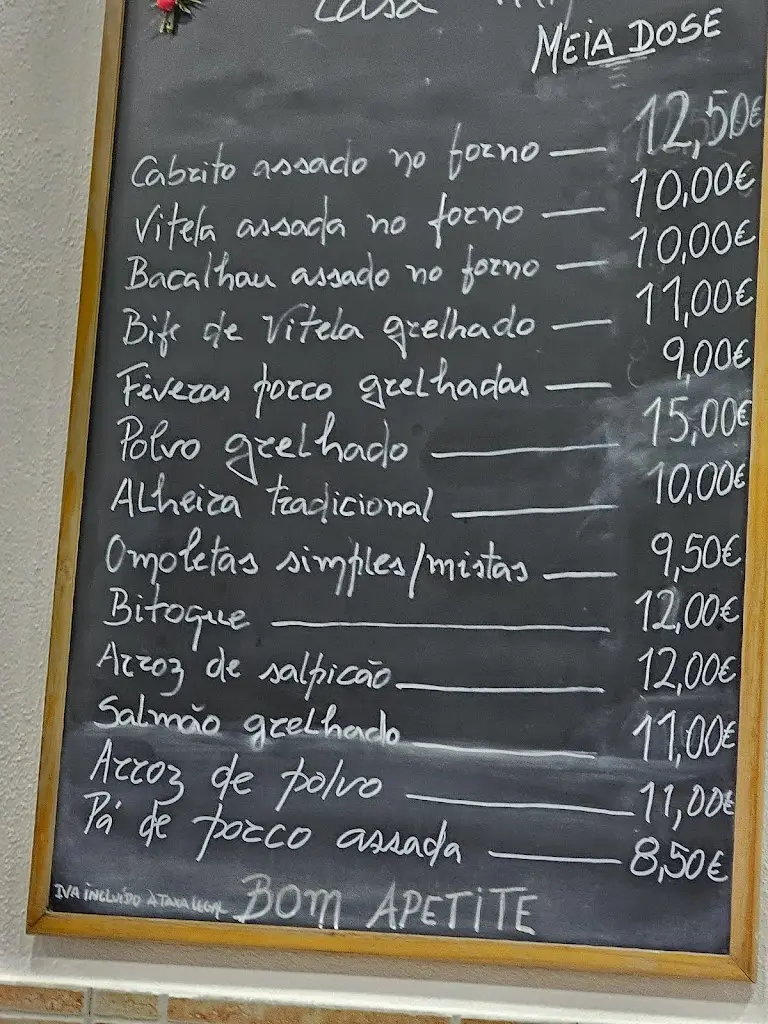 Casa
MEIA DOSE
Cabrito assado no forno — 12,50€
Vitela assada no forno — 10,00€
Bacalhau assado no forno — 10,00€
Bife de Vitela grelhado — 11,00€
Fêveras porco grelhadas — 9,00€
Polvo grelhado — 15,00€
Alheira tradicional — 10,00€
Omoletas simples/mistas — 9,50€
Bitoque — 12,00€
Arroz de salpicão — 12,00€
Salmão grelhado — 11,00€
Arroz de polvo — 11,00€
Pá de porco assada — 8,50€
IVA INCLUÍDO À TAXA LEGAL BOM APETITE